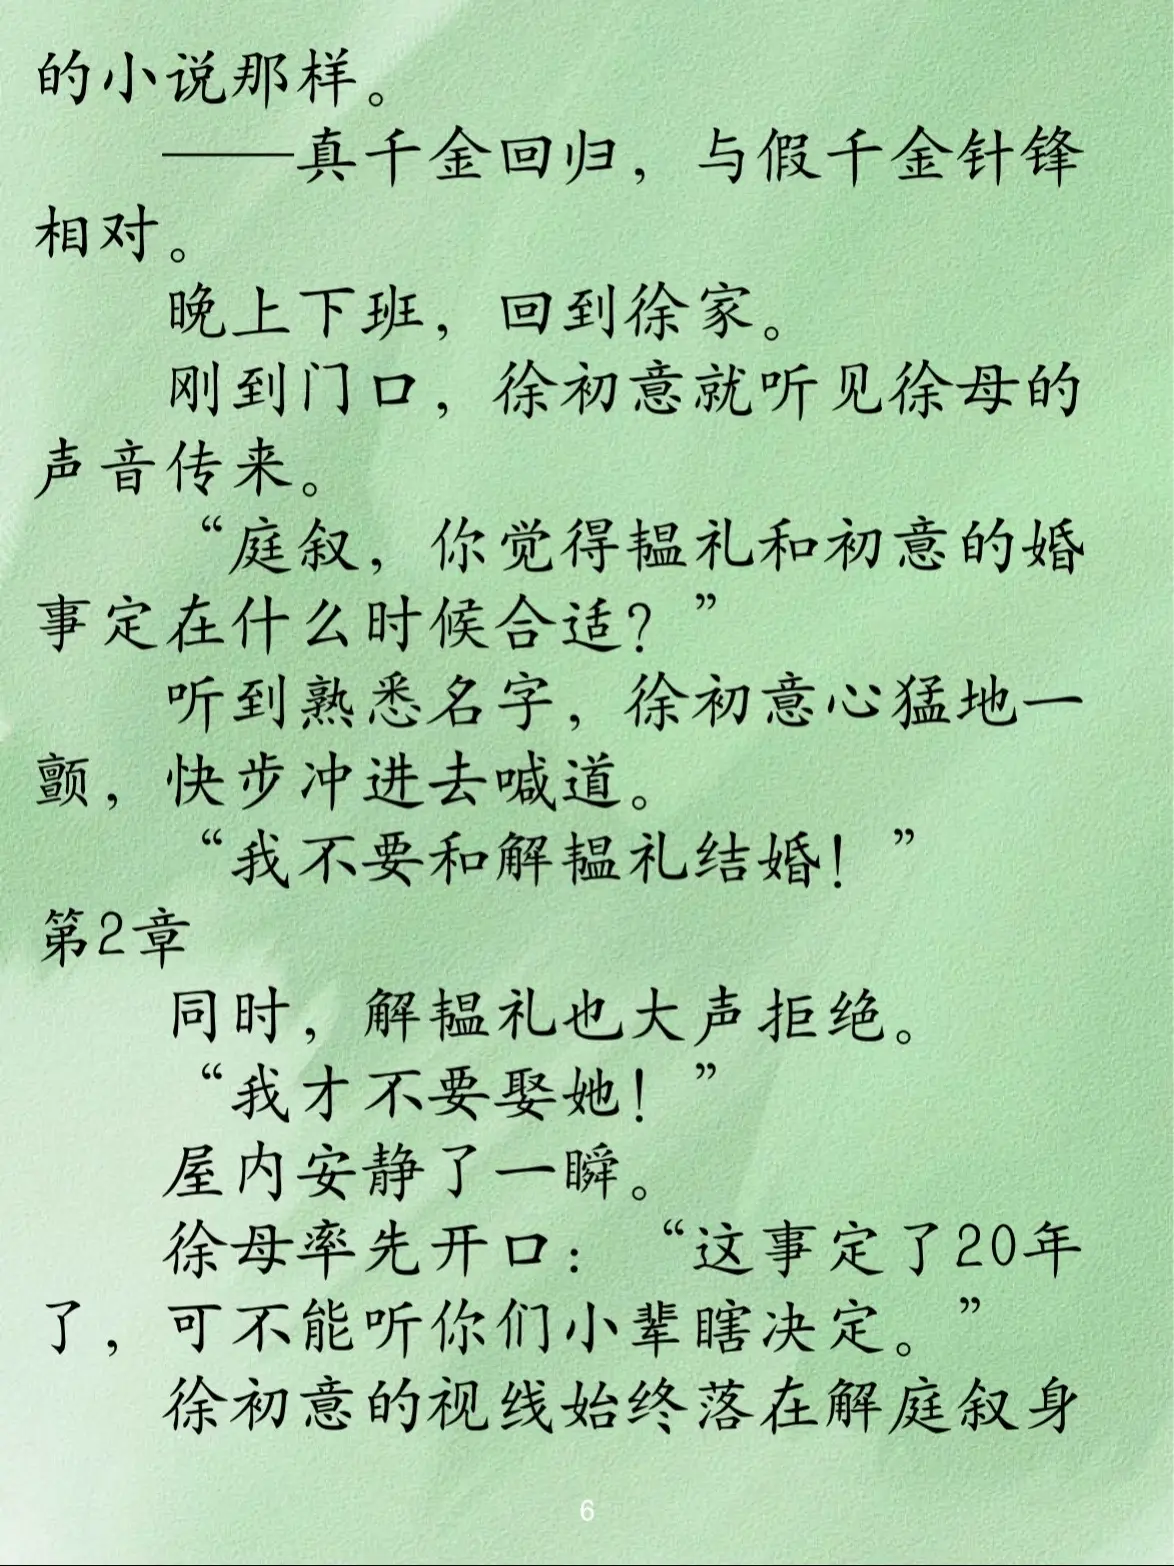 的小说那样。
——真千金回归，与假千金针锋
相对。
晚上下班，回到徐家。
刚到门口，徐初意就听见徐母的
声音传来。
“庭叙，你觉得韫礼和初意的婚
事定在什么时候合适？”
听到熟悉名字，徐初意心猛地一
颤，快步冲进去喊道。
“我不要和解韫礼结婚！”
第2章
同时，解韫礼也大声拒绝。
“我才不要娶她！”
屋内安静了一瞬。
徐母率先开口：“这事定了20年
了，可不能听你们小辈瞎决定。”
徐初意的视线始终落在解庭叙身
6